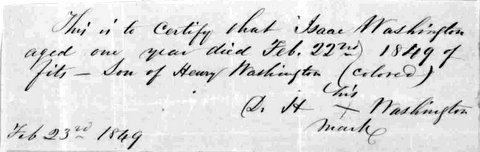 This is to certify that Isaac Washington
aged one year died Feb. 22nd 1849 of
fits — Son of Henry Washington (colored)
his
D. H + Washington
mark
Feb 23rd 1849